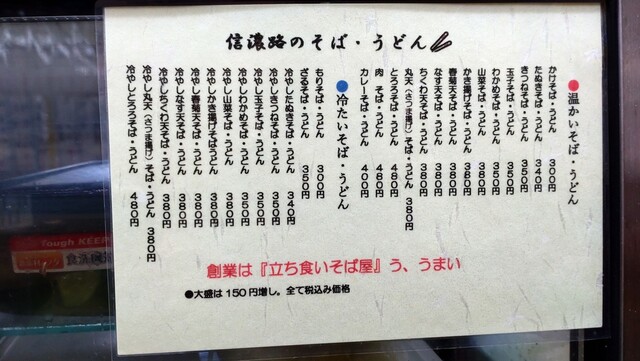 信濃路のそば・うどん
●温かいそば・うどん
かけそば・うどん 300円
たぬきそば・うどん 340円
きつねそば・うどん 350円
玉子そば・うどん 350円
わかめそば・うどん 350円
山菜そば・うどん 380円
かき揚げそば・うどん 380円
春菊天そば・うどん 380円
なす天そば・うどん 380円
ちくわ天そば・うどん 380円
丸天(さつま揚げ)そば・うどん 380円
とろろそば・うどん 480円
肉 そば・うどん 480円
カレーそば・うどん 400円
●冷たいそば・うどん
もりそば・うどん 300円
ざるそば・うどん 350円
冷やしたぬきそば・うどん 340円
冷やしきつねそば・うどん 350円
冷やし玉子そば・うどん 350円
冷やしわかめそば・うどん 350円
冷やし山菜そば・うどん 380円
冷やしかき揚げそばうどん 380円
冷やし春菊天そば・うどん 380円
冷やしなす天そば・うどん 380円
冷やしちくわ天そば・うどん 380円
冷やし丸天(さつま揚げ)そば・うどん 380円
冷やしとろろそば・うどん 480円
創業は『立ち食いそば屋』う、うまい
●大盛は150円増し。全て税込み価格
Tough KEEP